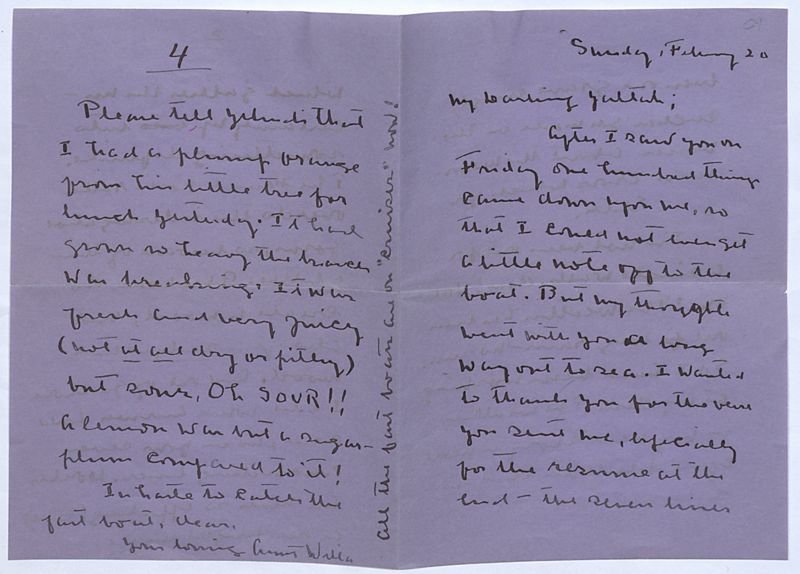 Sunday, February 20
My Darling Yaltah;
After I saw you on
Friday one hundred things
came down upon me, so
that I could not even get
a little note off to the
boat. But my thoughts
went with you a long
way out to sea. I wanted
to thank you for the
you sent me, especially
for the resume at the
end - the seven lines
4
Please tell Yehudi that
I had a plump orange
from his little tree for
lunch yesterday. It had
grown so heavy the branch
was breaking. It was
fresh and very juicy
(not at all dry or pithy)
but sour, Oh SOUR!!
A lemon was but a sugar-
plum compared to it!
In haste to catch the
fast boat, dear.
Your loving Aunt Willa
All the fast boats are on "cruises" now!